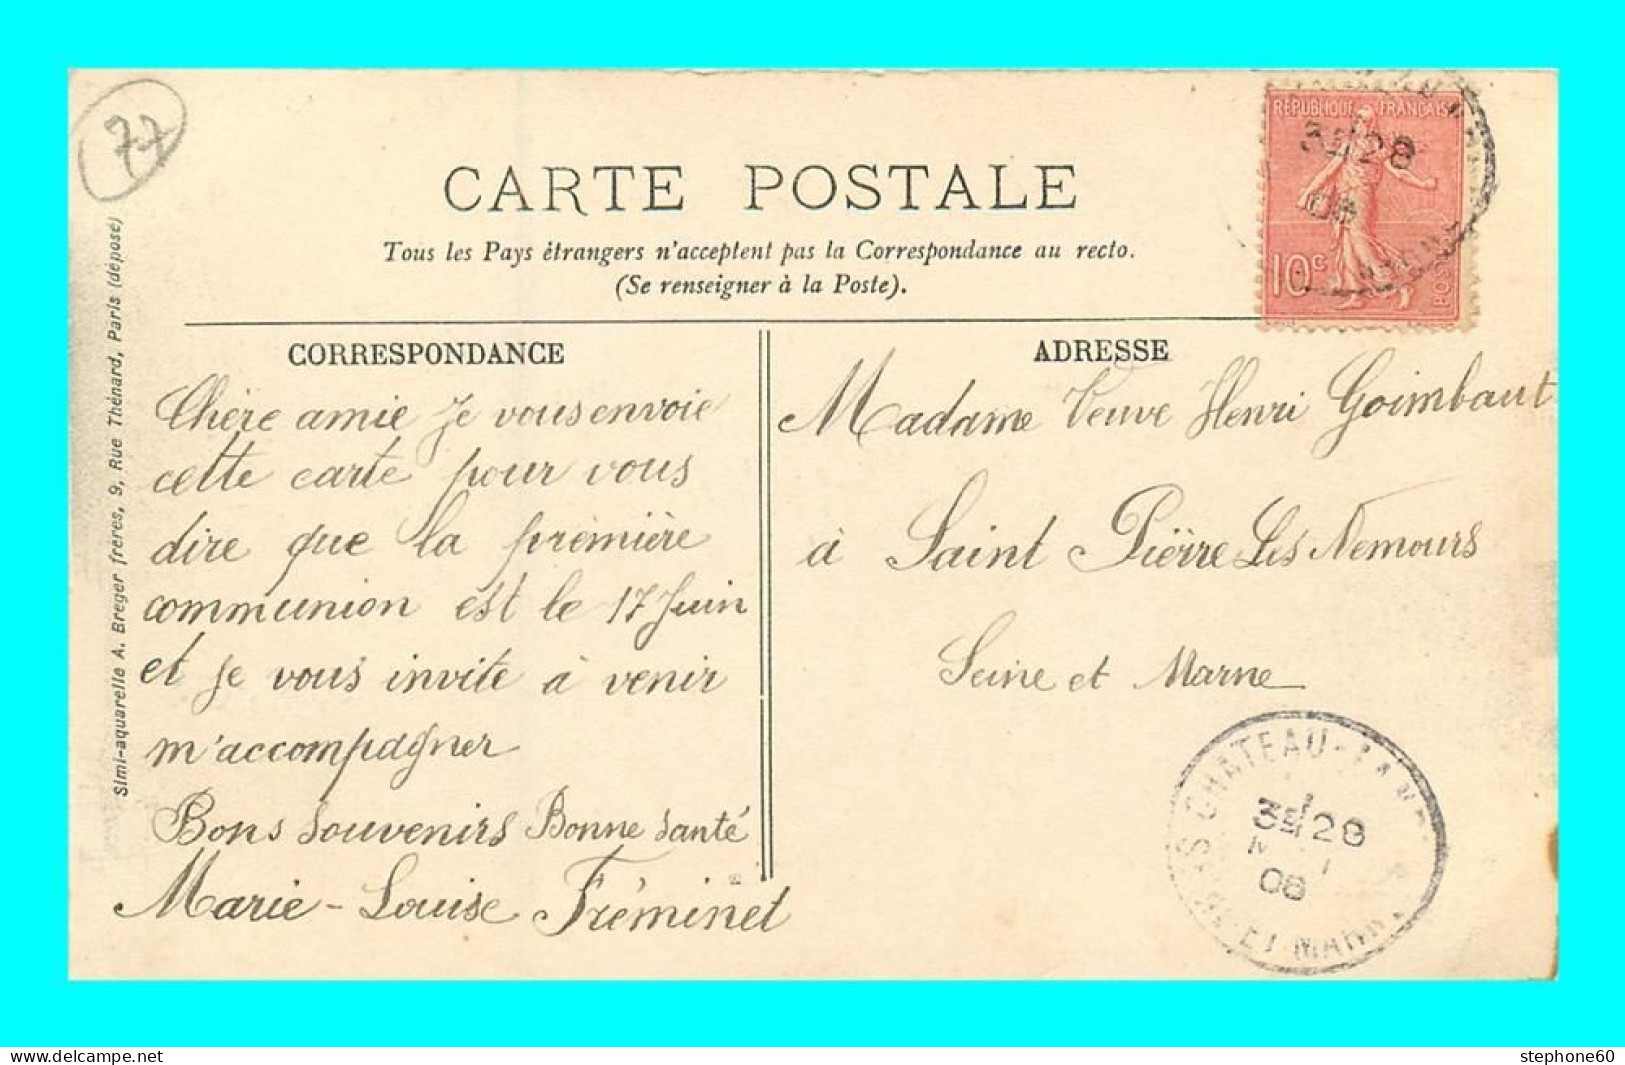 77
RÉPUBLIQUE FRANÇAISE
10c
3E 28
06
CARTE POSTALE
Tous les Pays étrangers n'acceptent pas la Correspondance au recto.
(Se renseigner à la Poste).
CORRESPONDANCE
Chère amie Je vous envoie
cette carte pour vous
dire que la prémière
communion est le 17 Juin
et je vous invite à venir
m'accompagner
Bons Souvenirs Bonne Santé
Marie-Louise Fréminet
ADRESSE
Madame Veuve Henri Goimbaut
à Saint Pierre Les Nemours
Seine et Marne
CHATEAU-
3E 28
06
ET MARNE
Simi-aquarelle A. Breger frères, 9, Rue Thénard, Paris (déposé)
www.delcampe.net
stephone60